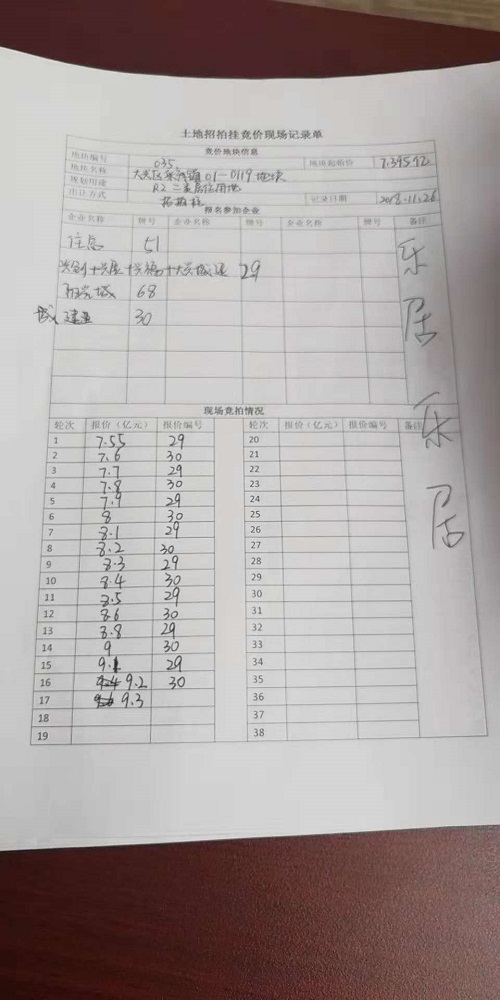 土地招拍挂竞价现场记录单
竞价地块信息
地块编号 035 地块起始价 7.395亿
地块名称 大兴区采育镇01-0119地块
规划用途 R2二类居住用地
出让方式 招拍挂 记录日期 2018.11.26
报名参加企业
企业名称 牌号 企业名称 牌号 企业名称 牌号 备注
住总 51
兴创+兴展+兴福+大兴城建 29
68
城建 30
乐居 乐居
现场竞拍情况
轮次 报价（亿元） 报价编号 轮次 报价（亿元） 报价编号 备注
1 7.55 29 20
2 7.6 30 21
3 7.7 29 22
4 7.8 30 23
5 7.9 29 24
6 8 30 25
7 8.1 29 26
8 8.2 30 27
9 8.3 29 28
10 8.4 30 29
11 8.5 29 30
12 8.6 30 31
13 8.8 29 32
14 9 30 33
15 9.1 29 34
16 9.2 30 35
17 9.3 36
18 37
19 38